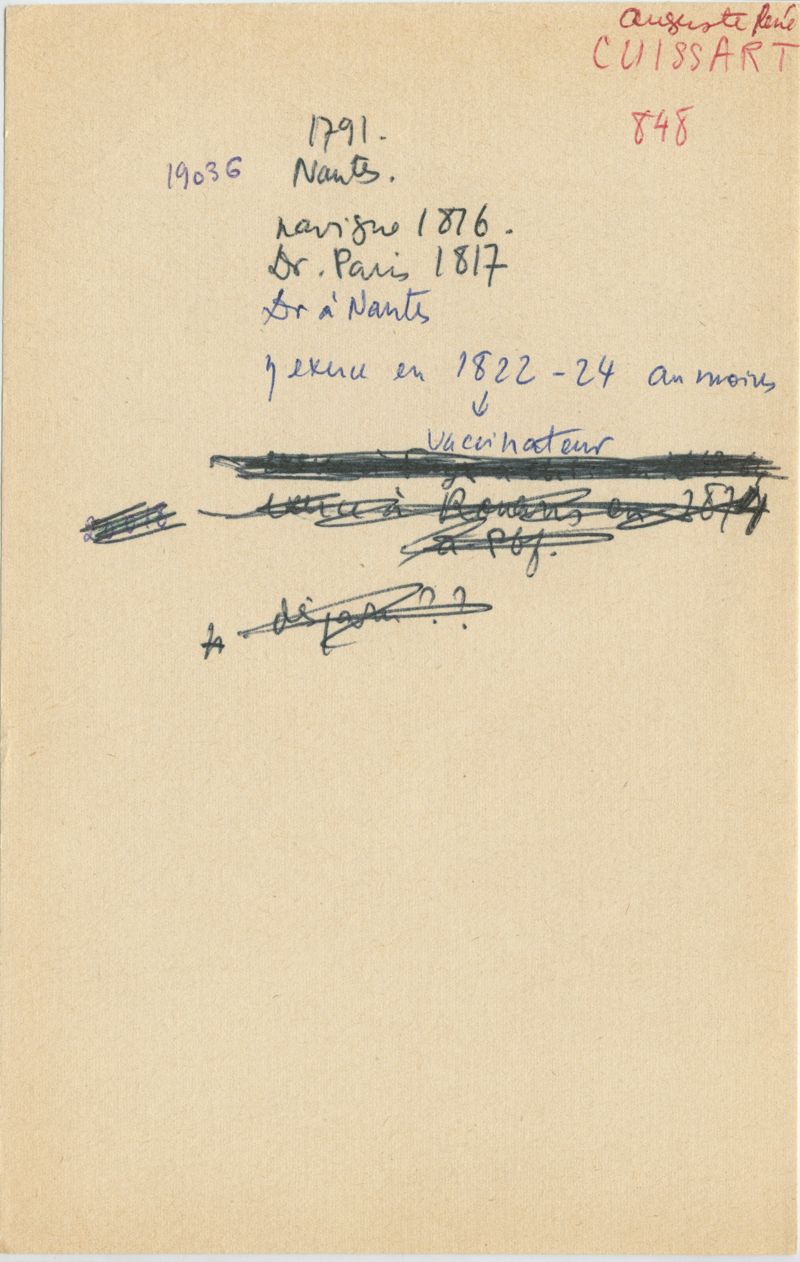 Auguste René
CUISSART
848
1791.
19036 Nantes.
navigue 1816.
Dr. Paris 1817
Dr à Nantes
y exerce en 1822-24 au moins
↓
Vaccinateur
exerce à Romans en 1874
à Pbf.